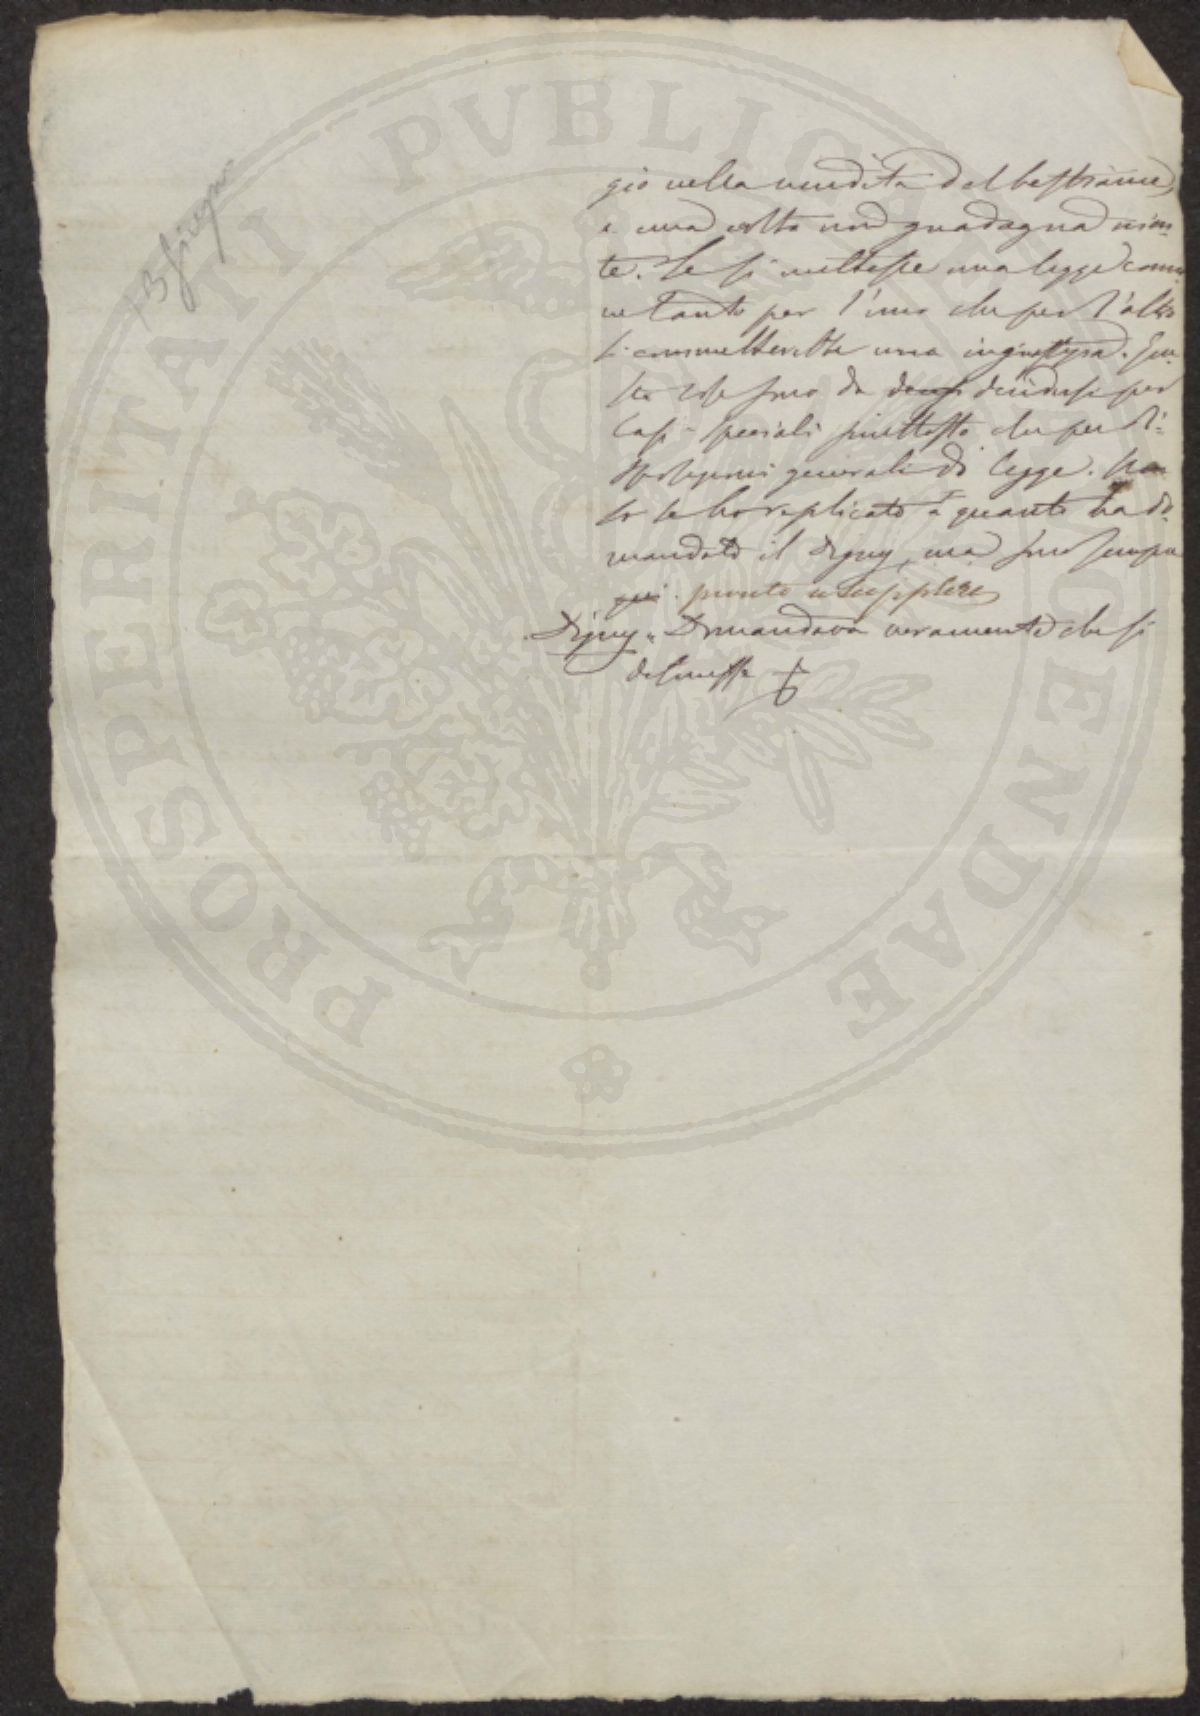 13 Giugno
PROSPERITATI PVBLICAE AVGENDAE
gio nella vendita del bestiame,
e una volta non guadagna nien-
te. Se si mettesse una legge comu
ne tanto per l'uno che per l'altro
si commetterebbe una ingiustizia. Que
ste cose sono da decidersi per
Casi speciali piuttosto che per di-
sposizioni generali di legge. Non
so se ho replicato a quanto ha do-
mandato il Digny, ma sono sempre
qui pronto a supplire
Digny " Domandava veramente che si